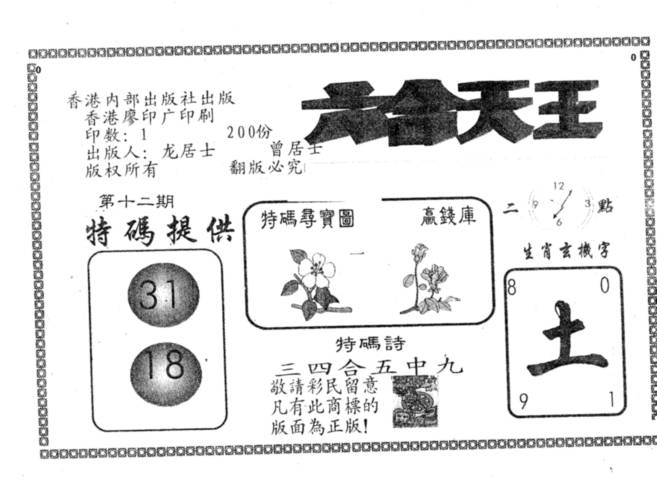 六合天王
香港内部出版社出版
香港廖印广印刷
印数：1 200份
出版人：龙居士 曾居士
版权所有 翻版必究
第十二期
特碼提供
31
18
特碼尋寶圖 贏錢庫
一
特碼詩
三四合五中九
敬請彩民留意
凡有此商標的
版面為正版！
二 12 3 6 9 點
生肖玄機字
8 0
土
9 1